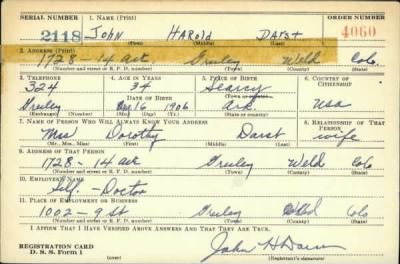 SERIAL NUMBER 1. NAME (Print) ORDER NUMBER
2118 John Harold Darst 4060
(First) (Middle) (Last)
2. ADDRESS (Print)
1728 - 14 ave Greeley Weld Colo.
(Number and street or R. F. D. number) (Town) (County) (State)
3. TELEPHONE 4. AGE IN YEARS 5. PLACE OF BIRTH 6. COUNTRY OF CITIZENSHIP
324 34 Searcy
(Town or county)
Greeley DATE OF BIRTH Ark. USA
16 1906
(Exchange) (Number) (Mo.) (Day) (Yr.) (State or country)
7. NAME OF PERSON WHO WILL ALWAYS KNOW YOUR ADDRESS 8. RELATIONSHIP OF THAT PERSON
Mrs Dorothy Darst wife
(Mr., Mrs., Miss) (First) (Middle) (Last)
9. ADDRESS OF THAT PERSON
1728 - 14 ave Greeley Weld Colo
(Number and street or R. F. D. number) (Town) (County) (State)
10. EMPLOYER'S NAME
Self. - Doctor
11. PLACE OF EMPLOYMENT OR BUSINESS
1002 - 9 St Greeley Weld Colo
(Number and street or R. F. D. number) (Town) (County) (State)
I AFFIRM THAT I HAVE VERIFIED ABOVE ANSWERS AND THAT THEY ARE TRUE.
REGISTRATION CARD
D. S. S. Form 1 (over) John H Darst
(Registrant's signature)